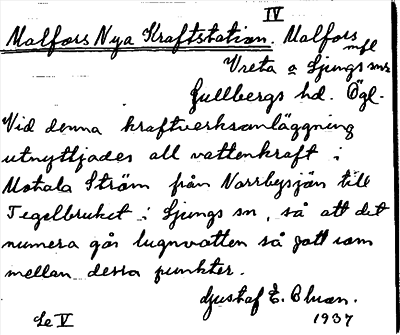 IV
Malfors Nya Kraftstation. Malfors
mfl
Vreta o Ljungs snr
Gullbergs hd. Ögl.
Vid denna kraftverksanläggning
utnyttjades all vattenkraft i
Motala Ström från Norrbysjön till
Tegelbruket i Ljungs sn, så att det
numera går lugnvatten så gott som
mellan dessa punkter.
Gustaf E. Ohson.
Le V 1937